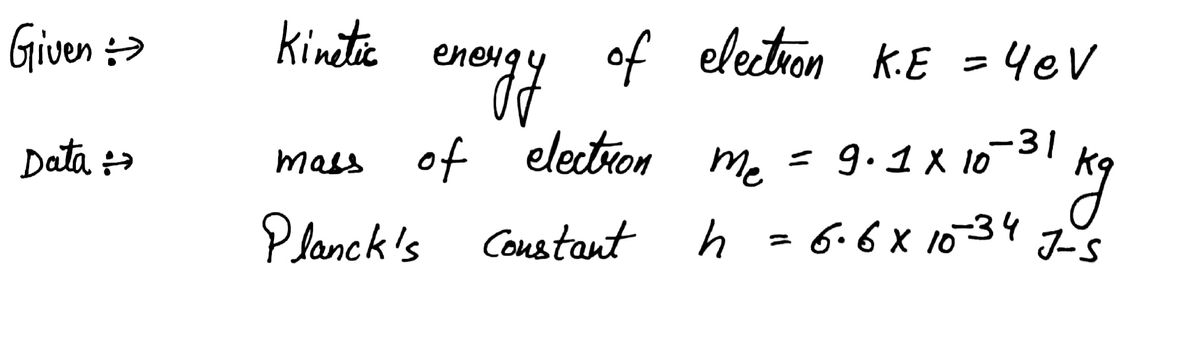 Given :→ Kinetic energy of electron K.E = 4eV
Data :→ mass of electron mₑ = 9.1 x 10⁻³¹ kg
Planck's Constant h = 6.6 x 10⁻³⁴ J-s